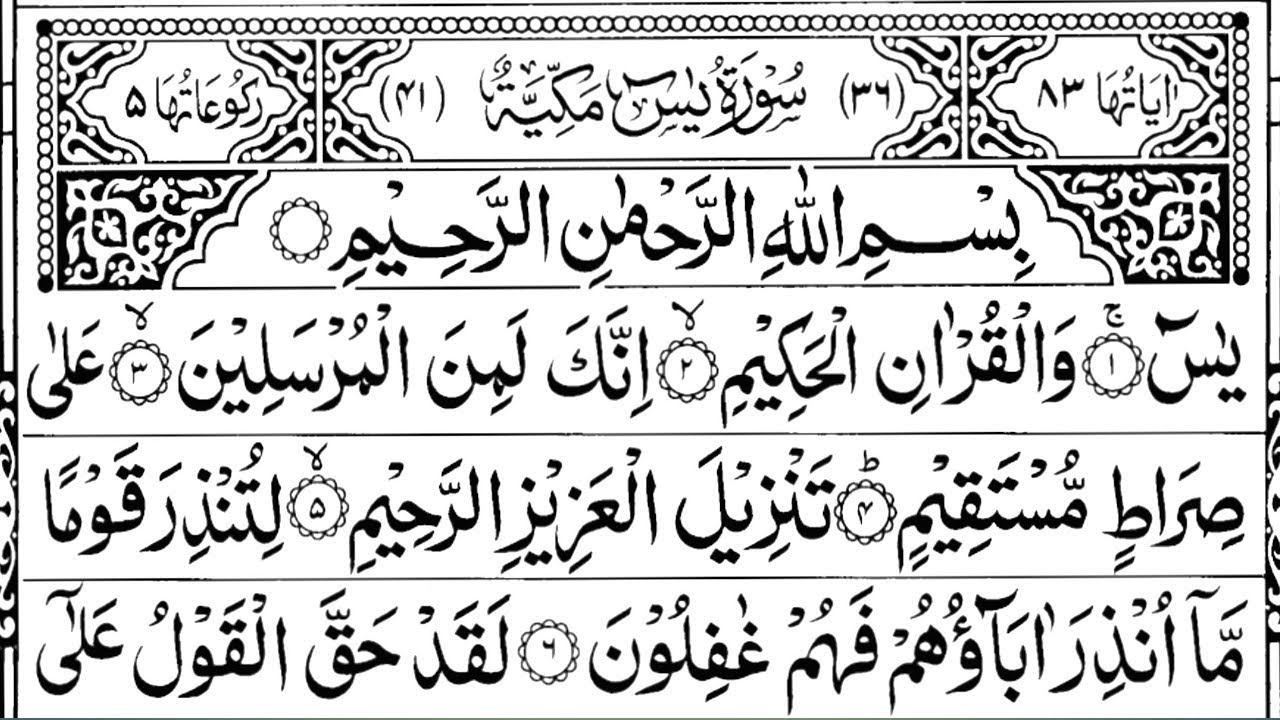 اٰیَاتُهَا ۸۳ (۳۶) سُوْرَةُ یٰسٓ مَكِّیَّةٌ (۴۱) رُكُوْعَاتُهَا ۵
بِسْمِ اللّٰهِ الرَّحْمٰنِ الرَّحِیْمِ
یٰسٓ ۚ ۱ وَالْقُرْاٰنِ الْحَكِیْمِ ۙ ۲ اِنَّكَ لَمِنَ الْمُرْسَلِیْنَ ۙ ۳ عَلٰی
صِرَاطٍ مُّسْتَقِیْمٍ ؕ ۴ تَنْزِیْلَ الْعَزِیْزِ الرَّحِیْمِ ۙ ۵ لِتُنْذِرَ قَوْمًا
مَّاۤ اُنْذِرَ اٰبَآؤُهُمْ فَهُمْ غٰفِلُوْنَ ۶ لَقَدْ حَقَّ الْقَوْلُ عَلٰۤی